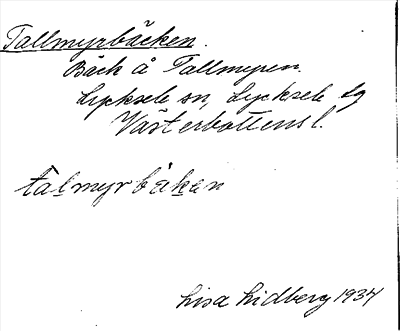 Tallmyrbäcken.
Bäck å Tallmyren.
Lycksele sn, Lycksele lg
Västerbottens l.
tàlmyrbäkan
Lisa Lidberg 1934